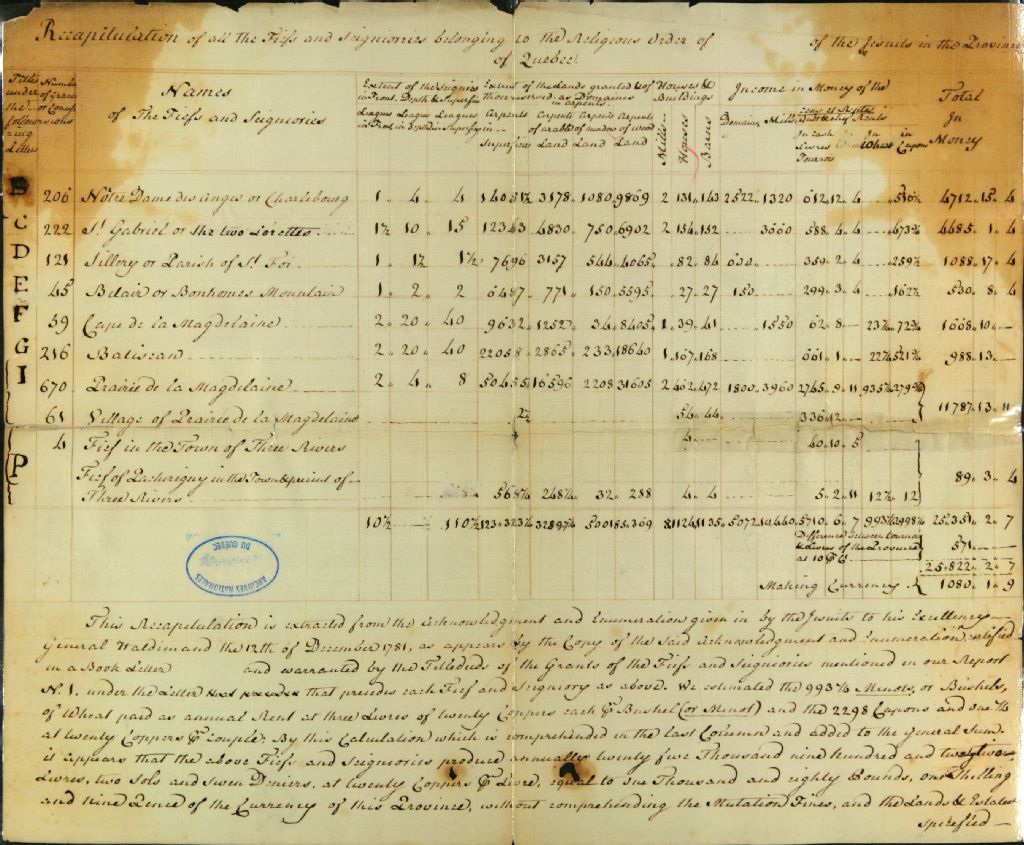 Recapitulation of all the Fiefs and Seigniories belonging to the Religious Order of of the Jesuits in the Province
of Quebec
Titles under the following Letters
Number of Grants or Concessions
Names of The Fiefs and Seigniories
Extent of the Seigniories in Front, Depth & Superficies
Leagues in Front Leagues in Depth Leagues Superficies
Extent of the Lands granted & of those reserved as Domaines in arpents
Arpents Superficies Arpents of arable Land Arpents of meadows Land Arpents of wood Land
Houses & Buildings
Mills Houses Barns
Income in Money of the
Domaines Mills
In cash Livres Tournois In Wheat in Capons
Total In Money
B 206 Notre Dame des anges or Charlebourg 1 4 4 3178 1080 9869 2 131 143 2522 1320 612 12 4 4712 15 4
C 222 St Gabriel or the two Lorettes 1½ 10 15 12343 4830 750 6902 2 154 152 3000 588 4 4 4485 1 4
D 121 Sillery or Parish of St Foi 1 1½ 1½ 7696 3157 544 4065 82 84 359 2 4 259½ 1088 17 4
E 45 Belair or Bonhomes Mountain 1 2 2 6487 771 150 5595 27 27 150 299 3 4 162½ 530 8 4
F 59 Cape de la Magdelaine 2 20 40 9632 1252 34 8405 1 39 41 1550 62 8 1668 10
G 216 Batiscan 2 20 40 22058 2865 233 18640 1 167 168 661 1 988 13
I 670 Prairie de la Magdelaine 2 4 8 50455 16596 2208 31605 2 462 472 1800 3960 2745 9 11
61 Village of Prairie de la Magdelaine 54 44 336 12 11787 13 11
P 4 Fief in the Town of Three Rivers 4 40 10 5
Fief of Pacherigny in the Town & precinct of
Three Rivers 568¼ 248¼ 32 288 4 4 5 2 11 12½ 12 89 3 4
10½ 110½ 5072 5710 6 7 25.351 2 7
Difference between tournois & Livres of the Province as 10 571
25.822 2 7
Making Currency £ 1080 1 9
ARCHIVES NATIONALES DU QUÉBEC
This Recapitulation is extracted from the Acknowledgment and Enumeration given in by the Jesuits to his Excellency
General Haldimand the 12th of December 1781, as appears by the Copy of the said Acknowledgment and Enumeration, certified
in a Book Letter and warranted by the Titledeeds of the Grants of the Fiefs and Seigniories mentioned in our Report
N. 1. under the Letter that precedes each Fief and Seigniory as above. We estimated the 993¾ Minots, or Bushels,
of Wheat paid as annual Rent at three Livres of twenty Coppers each ₱ Bushel (or Minot) and the 2298 Capons and one ½
at twenty Coppers ₱ couple; By this Calculation which is comprehended in the last Column and added to the general Sum.
it appears that the above Fiefs and Seigniories produce annually twenty five Thousand nine hundred and twenty two
Livres, two Sols and Seven Deniers, at twenty Coppers ₱ Livre, equal to one Thousand and eighty Pounds, one Shilling
and nine Pence of the Currency of this Province, without comprehending the Mutation Fines, and the Lands & Estates
specified